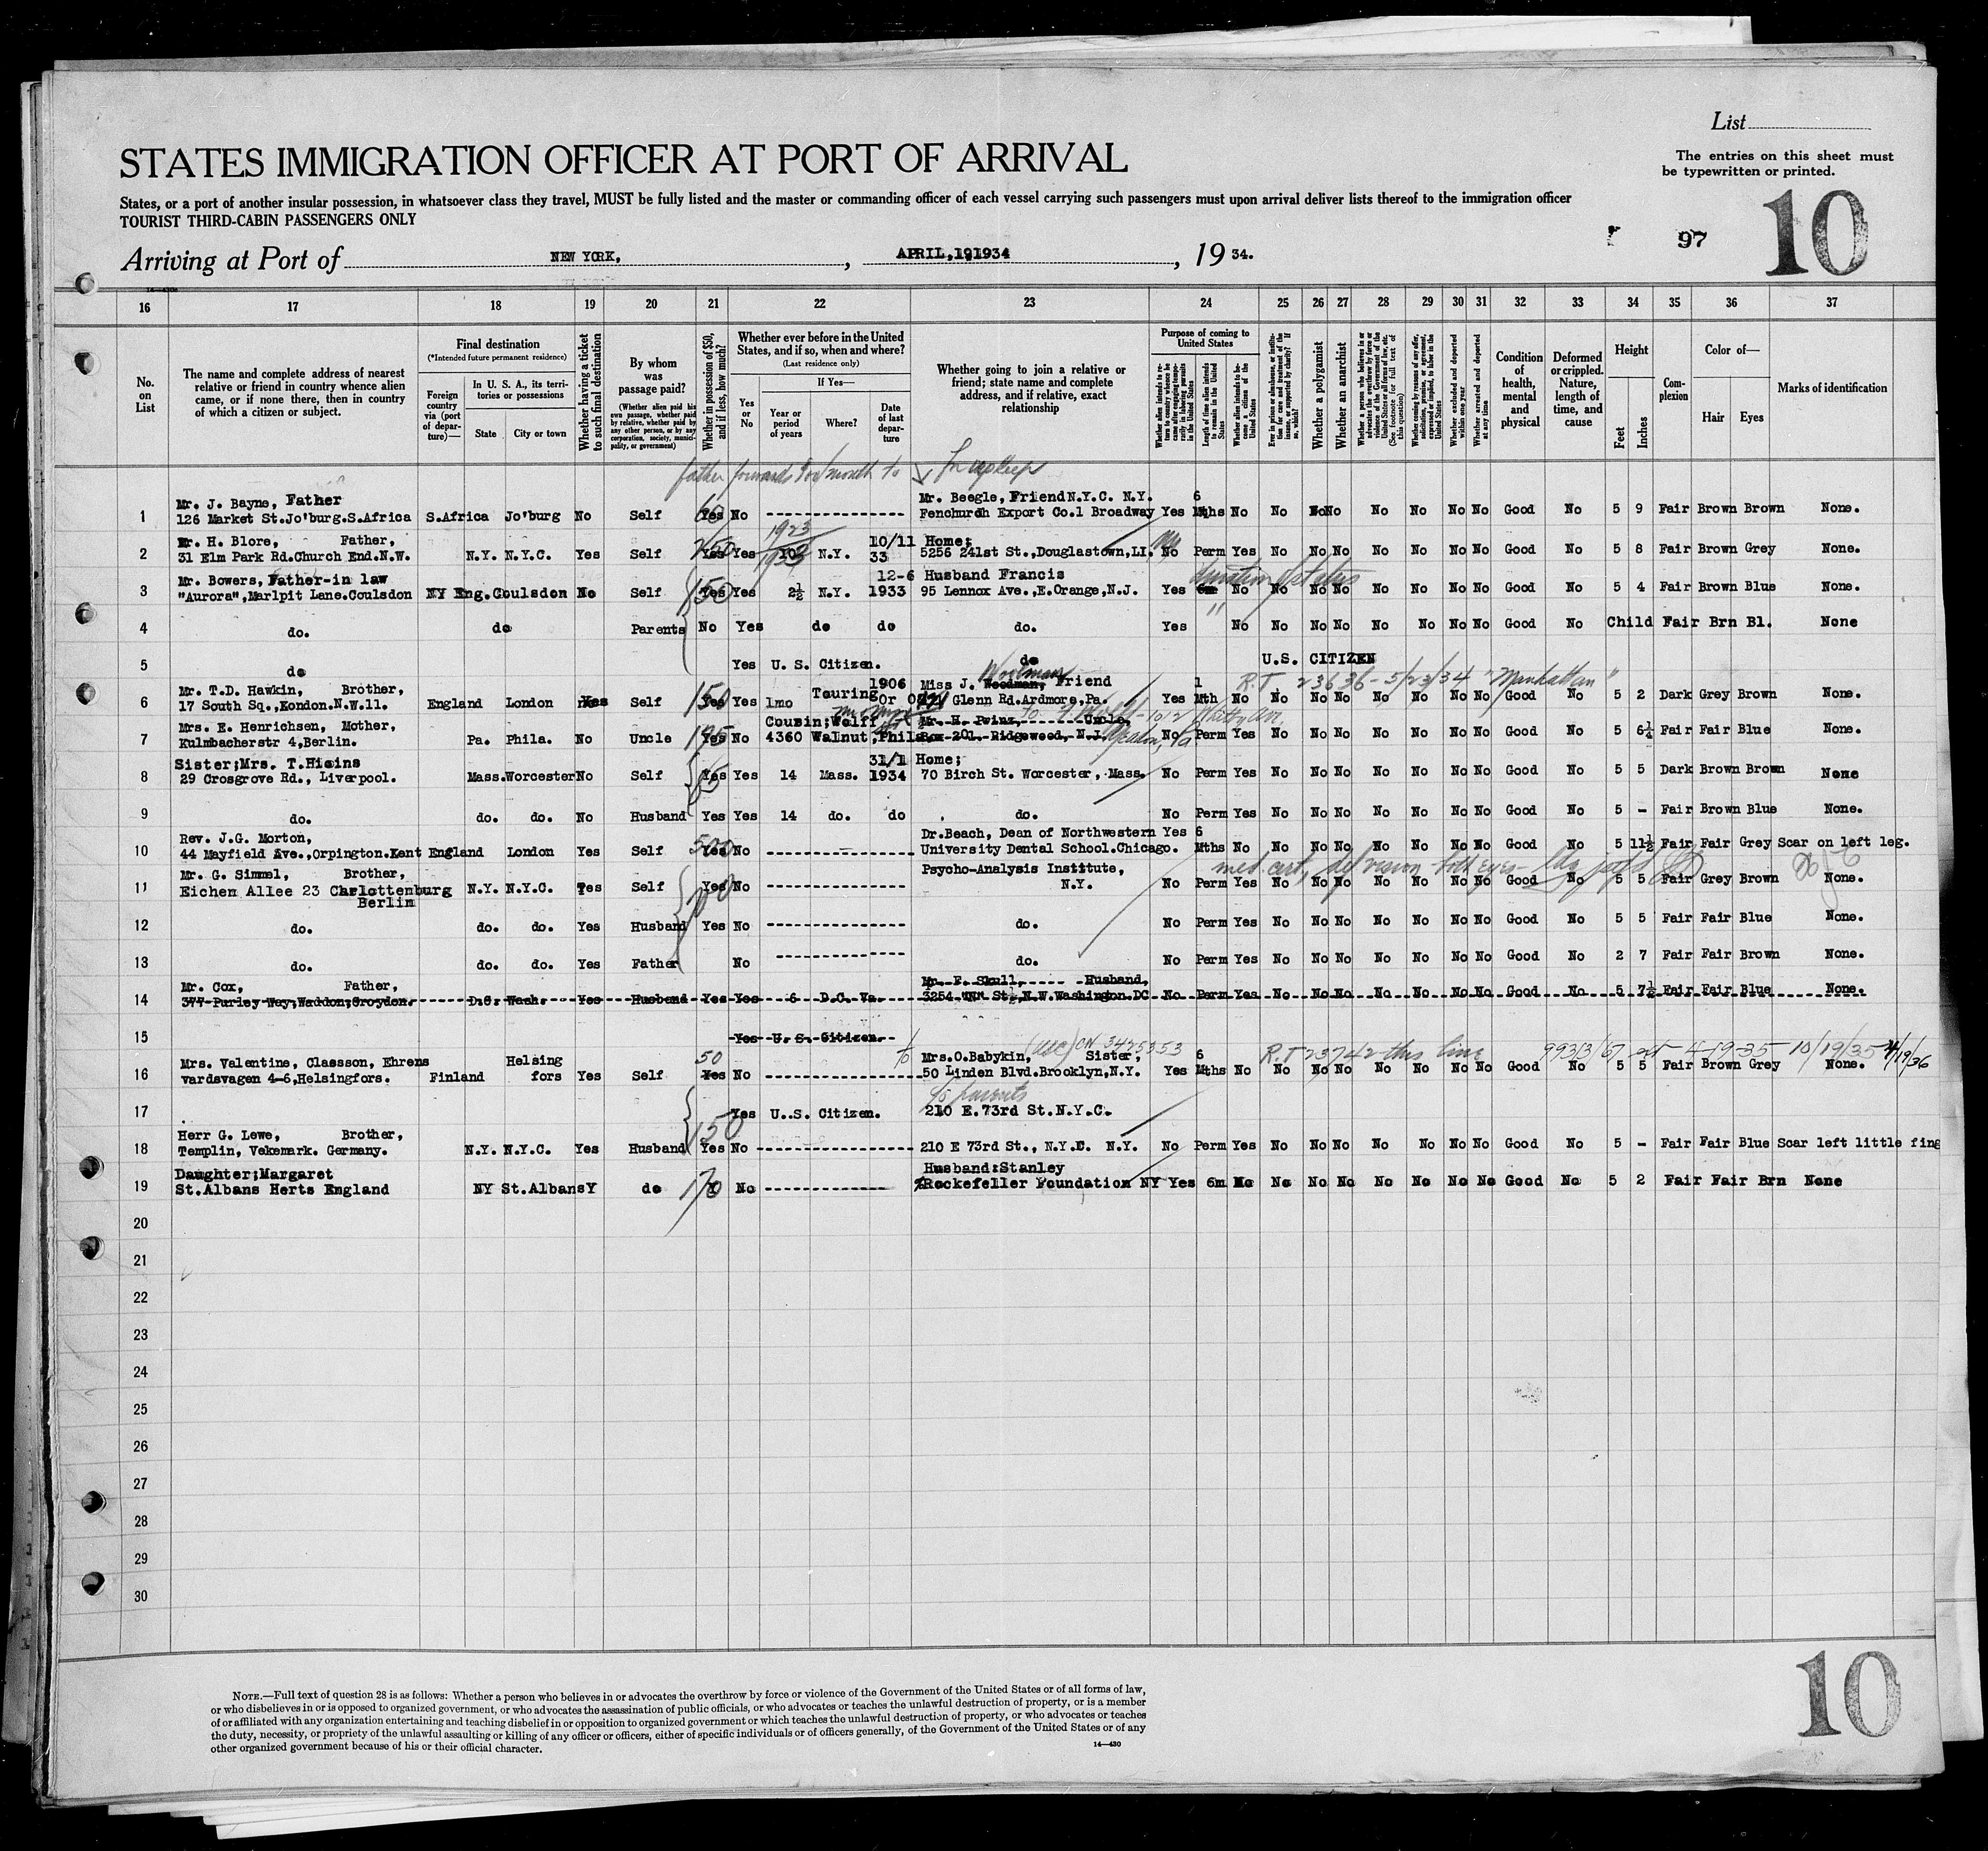 List
STATES IMMIGRATION OFFICER AT PORT OF ARRIVAL
The entries on this sheet must
be typewritten or printed.
States, or a port of another insular possession, in whatsoever class they travel, MUST be fully listed and the master or commanding officer of each vessel carrying such passengers must upon arrival deliver lists thereof to the immigration officer
TOURIST THIRD-CABIN PASSENGERS ONLY
10
97
Arriving at Port of NEW YORK, , APRIL,191934 , 19 34.
16 17 18 19 20 21 22 23 24 25 26 27 28 29 30 31 32 33 34 35 36 37
No. on List
The name and complete address of nearest relative or friend in country whence alien came, or if none there, then in country of which a citizen or subject.
Final destination
(*Intended future permanent residence)
Foreign country via (port of departure)—
In U. S. A., its territories or possessions
State City or town
Whether having a ticket to such final destination
By whom was passage paid?
(Whether alien paid his own passage, whether paid by relative, whether paid by any other person, or by any corporation, society, municipality, or government)
Whether in possession of $50, and if less, how much?
Whether ever before in the United States, and if so, when and where?
(Last residence only)
Yes or No
If Yes—
Year or period of years Where? Date of last departure
Whether going to join a relative or friend; state name and complete address, and if relative, exact relationship
Purpose of coming to United States
Whether alien intends to return to country whence he came after engaging temporarily in laboring pursuits in the United States
Length of time alien intends to remain in the United States
Whether alien intends to become a citizen of the United States
Ever in prison or almshouse, or institution for care and treatment of the insane, or supported by charity? If so, which?
Whether a polygamist
Whether an anarchist
Whether a person who believes in or advocates the overthrow by force or violence of the Government of the United States or all forms of law, etc. (See footnote for full text of this question)
Whether coming by reason of any offer, solicitation, promise, or agreement, expressed or implied, to labor in the United States
Whether excluded and deported within one year
Whether arrested and deported at any time
Condition of health, mental and physical
Deformed or crippled. Nature, length of time, and cause
Height
Feet Inches
Complexion
Color of—
Hair Eyes
Marks of identification
father forwards month to for upkeep
Mr. J. Bayne, Father Mr. Beegle, Friend N.Y.C. N.Y. 6
1 126 Market St.Jo'burg.S.Africa S.Africa Jo'burg No Self Yes No Fenchurch Export Co.1 Broadway Yes Mths No No No No No No No No Good No 5 9 Fair Brown Brown None.
1923
Mr. H. Blore, Father, 10/11 Home;
2 31 Elm Park Rd.Church End.N.W. N.Y. N.Y.C. Yes Self Yes Yes N.Y. 33 5256 241st St.,Douglastown,LI. No Perm Yes No No No No No No No Good No 5 8 Fair Brown Grey None.
1933
Mr. Bowers, Father-in law 12-6 Husband Francis duration status
3 "Aurora",Marlpit Lane.Coulsdon NY Eng.Coulsdon No Self 150 Yes Yes 2½ N.Y. 1933 95 Lennox Ave.,E.Orange,N.J. Yes 6m No No No No No No No No Good No 5 4 Fair Brown Blue None.
4 do. do Parents No Yes do do do. Yes " No No No No No No No No Good No Child Fair Brn Bl. None
5 do Yes U. S. Citizen. do U.S. CITIZEN
Mr. T.D. Hawkin, Brother, Touring 1906 Miss J. Woodman, Woolman Friend 1 R.T 23636 - 5/23/34 "Manhattan"
6 17 South Sq.,Kondon.N.W.11. England London Yes Self 150 Yes Yes 1mo Or Glenn Rd.Ardmore,Pa. Yes Mth No No No No No No No No Good No 5 2 Dark Grey Brown None.
Mrs. E. Henrichsen, Mother, Cousin;Wolff Mr. H. Prinz, Uncle, 1012
7 Kulmbacherstr 4,Berlin. Pa. Phila. No Uncle 195 Yes No 4360 Walnut,Phila Box 201 Ridgewood, N.J. No Perm Yes No No No No No No No Good No 5 6¼ Fair Fair Blue None.
Sister;Mrs. T.Higins 31/1 Home;
8 29 Crosgrove Rd., Liverpool. Mass.Worcester No Self Yes Yes 14 Mass. 1934 70 Birch St. Worcester, Mass. No Perm Yes No No No No No No No Good No 5 5 Dark Brown Brown None
9 do. do. do. No Husband Yes Yes 14 do. do do. No Perm Yes No No No No No No No Good No 5 - Fair Brown Blue None.
Rev. J.G. Morton, Dr.Beach, Dean of Northwestern Yes 6
10 44 Mayfield Ave.,Orpington.Kent England London Yes Self 500 Yes No University Dental School.Chicago. Mths No No No No No No No No Good No 5 11½ Fair Fair Grey Scar on left leg.
Mr. G. Simmel, Brother, Psycho-Analysis Institute, med. cert, def vision both eyes
11 Eichen Allee 23 Carlottenburg N.Y. N.Y.C. Yes Self Yes No N.Y. No Perm Yes No No No No No No No Good No 5 5 Fair Grey Brown None.
Berlin
12 do. do. do. Yes Husband Yes No do. No Perm Yes No No No No No No No Good No 5 5 Fair Fair Blue None.
13 do. do. do. Yes Father No do. No Perm Yes No No No No No No No Good No 2 7 Fair Fair Brown None.
Mr. Cox, Father, Mr. F. Skull, Husband,
14 377 Purley Way;Waddon;Croydon. D.C. Wash. Yes Husband Yes Yes 6 D.C. Va. 3254 "N" St.,N.W.Washington.DC No Perm Yes No No No No No No No Good No 5 7½ Fair Fair Blue None.
15 Yes U. S. Citizen.
Mrs. Valentine, Classson, Ehrens Helsing 50 Mrs.O.Babykin, (USC) CN 3425353 Sister, 6 R.T 23742 this line 4-19-35 10/19/35 4/19/36
16 vardsvagen 4-6,Helsingfors. Finland fors Yes Self Yes No 50 Linden Blvd.Brooklyn,N.Y. Yes Mths No No No No No No No No Good No 5 5 Fair Brown Grey None.
c/o parents
17 Yes U..S. Citizen. 210 E.73rd St.N.Y.C.
150
Herr G. Lewe, Brother,
18 Templin, Vekemark. Germany. N.Y. N.Y.C. Yes Husband Yes No 210 E 73rd St., N.Y.C. N.Y. No Perm Yes No No No No No No No Good No 5 - Fair Fair Blue Scar left little fing
Daughter;Margaret Husband:Stanley
19 St.Albans Herts England NY St.Albans Y do 170 No Rockefeller Foundation NY Yes 6m No No No No No No No No Good No 5 2 Fair Fair Brn None
20
21
22
23
24
25
26
27
28
29
30
NOTE.—Full text of question 28 is as follows: Whether a person who believes in or advocates the overthrow by force or violence of the Government of the United States or of all forms of law,
or who disbelieves in or is opposed to organized government, or who advocates the assassination of public officials, or who advocates or teaches the unlawful destruction of property, or is a member
of or affiliated with any organization entertaining and teaching disbelief in or opposition to organized government or which teaches the unlawful destruction of property, or who advocates or teaches
the duty, necessity, or propriety of the unlawful assaulting or killing of any officer or officers, either of specific individuals or of officers generally, of the Government of the United States or of any
other organized government because of his or their official character.
14—430
10